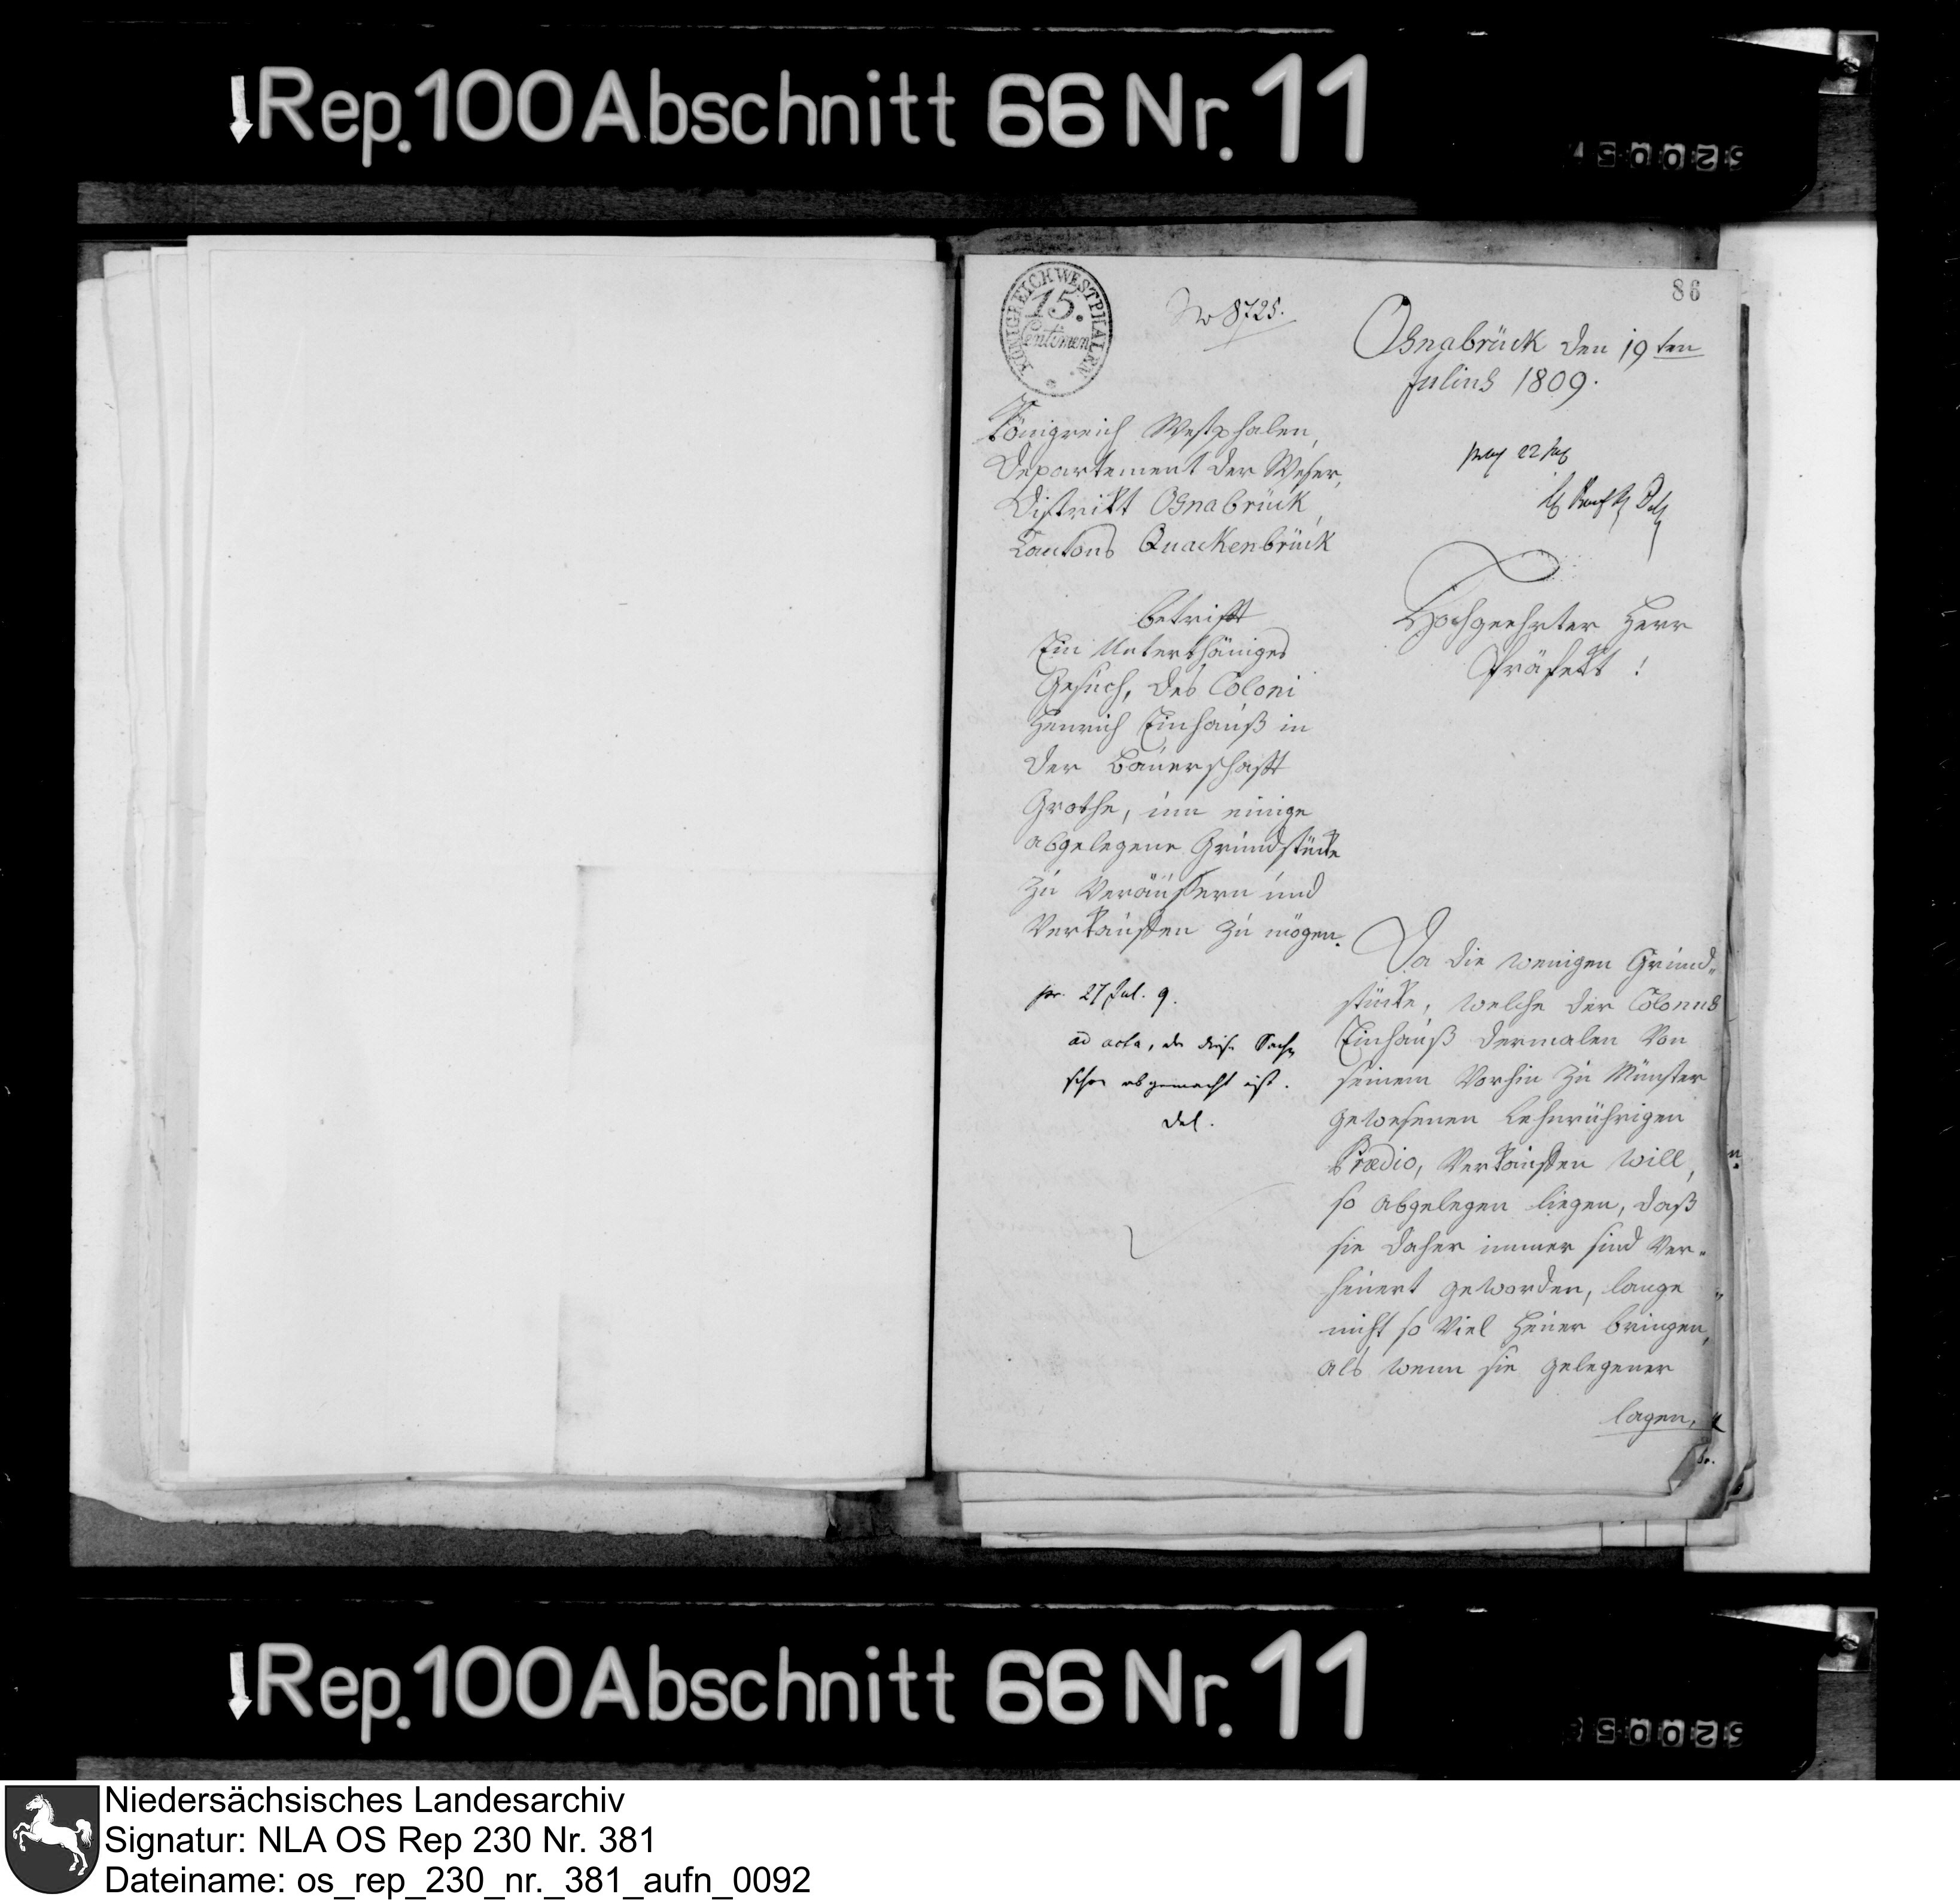 Rep. 100 Abschnitt 66 Nr. 11
86
KÖNIGREICH WESTPHALEN.
15.
Centimen
No 8725.
Osnabrück den 19ten
Julius 1809.
Königreich Westphalen,
Departement der Weser,
Distrikt Osnabrück,
Cantons Quackenbrück
betrifft
Ein Unterthäniges
Gesuch, des Coloni
Henrich Einhauß in
der Bauerschafft
Grothe, um einige
abgelegene Grundstücke
zu Veräussern und
Verkauffen zu mögen.
pr. 27 Jul. 9.
ad acta, da diese Sache
schon abgemacht ist.
Del.
22
Hochgeehrter Herr
Präfekt !
Da die wenigen Grund„
stücke, welche der Colonus
Einhauß dermalen Von
seinem Vorhin zu Münster
gewesenen Lehnrührigen
Praedio, Verkauffen will,
so abgelegen liegen, daß
sie daher immer sind Ver„
heuert geworden, lange
nicht so Viel Heuer bringen,
als wenn sie gelegener
lagen,
Rep. 100 Abschnitt 66 Nr. 11
Niedersächsisches Landesarchiv
Signatur: NLA OS Rep 230 Nr. 381
Dateiname: os_rep_230_nr._381_aufn_0092